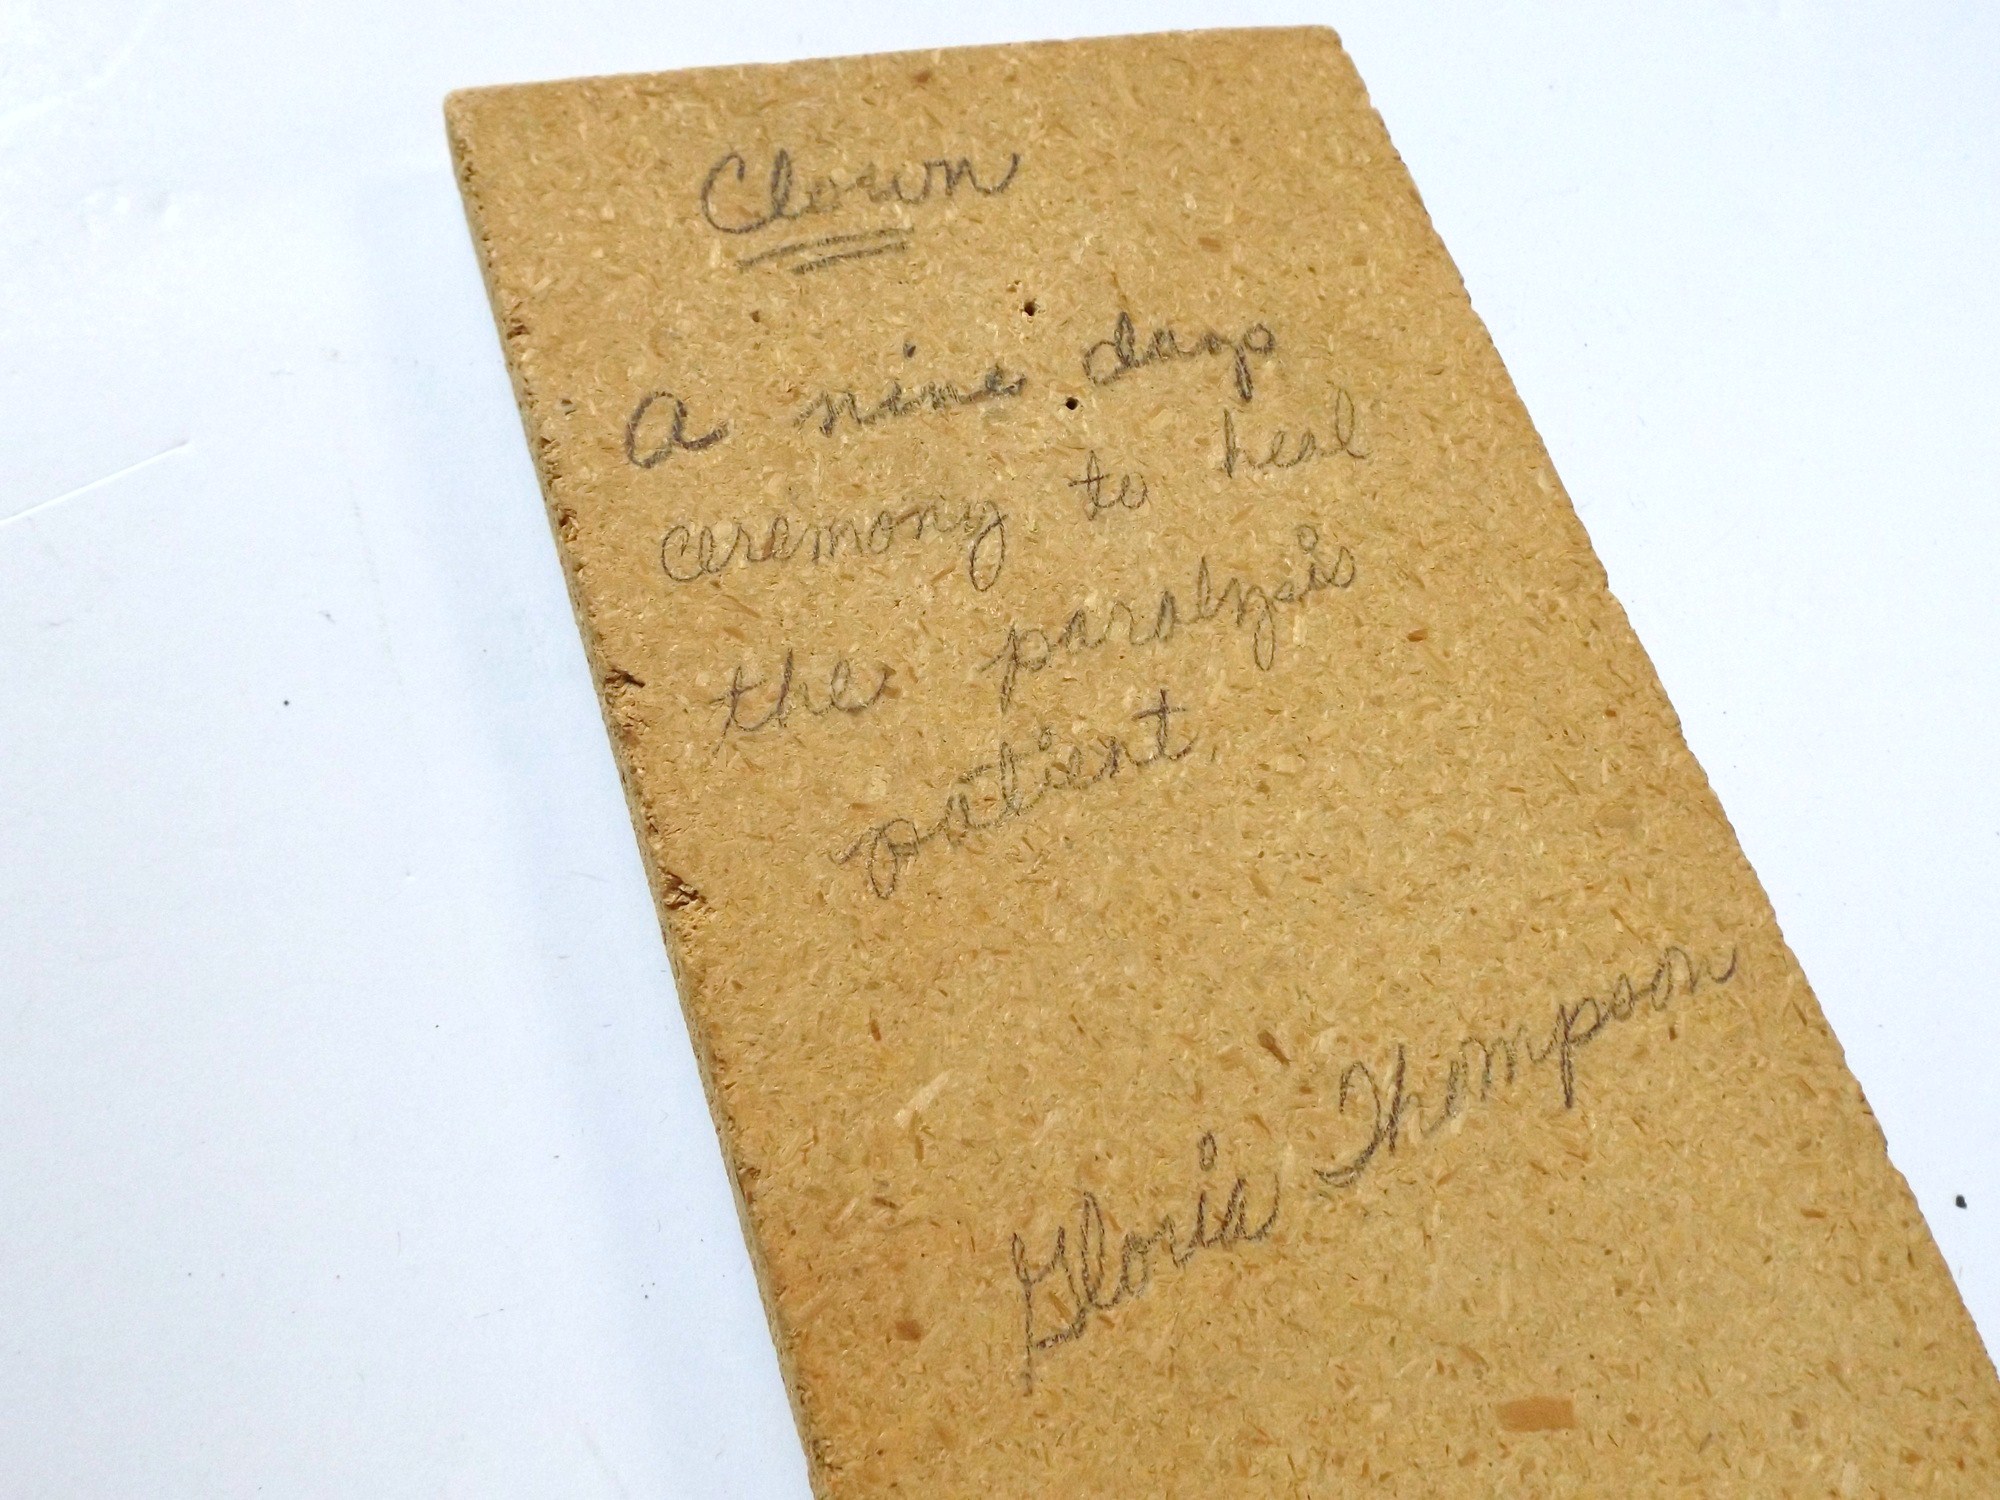 Clown
A nine days
ceremony to heal
the paralysis
patient.
Gloria Thompson